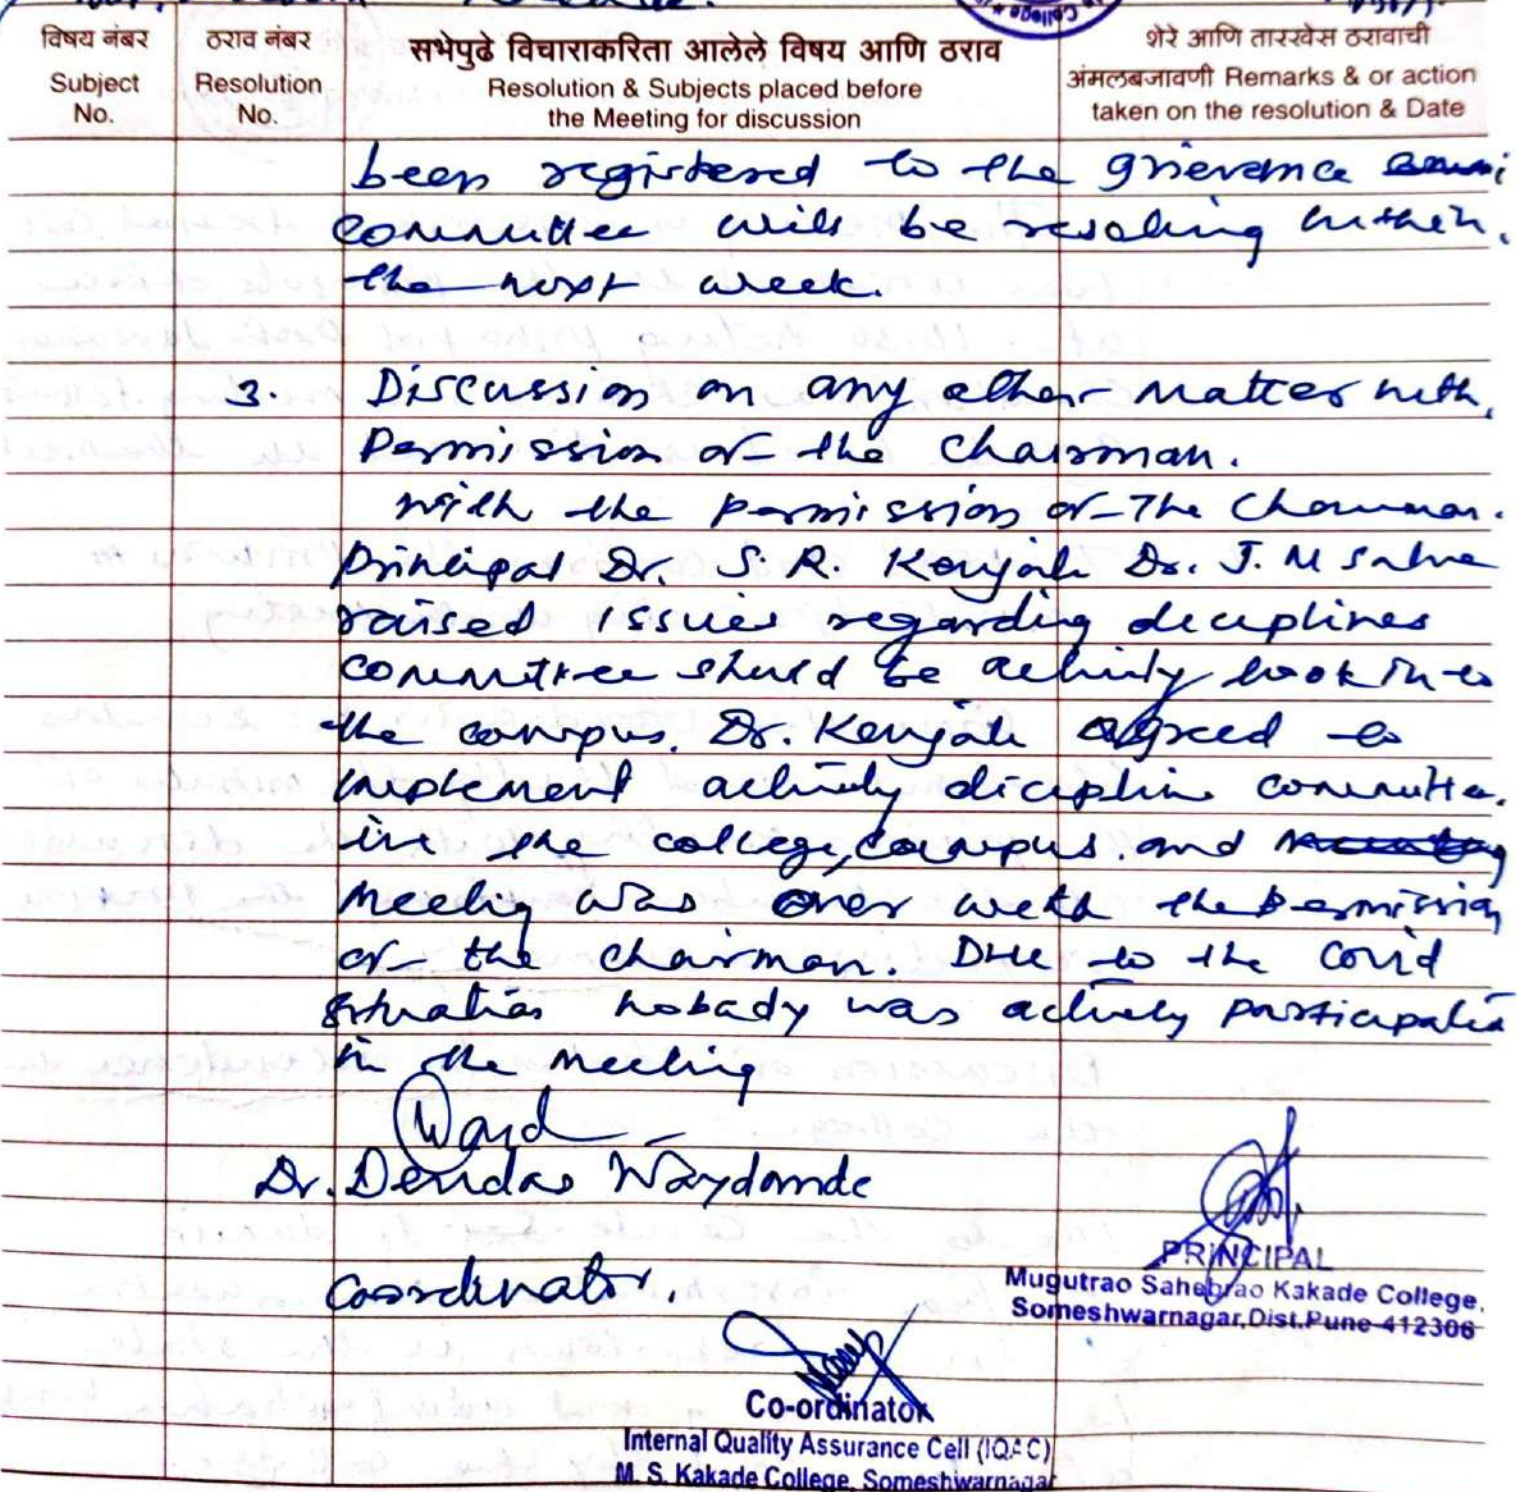 विषय नंबर
Subject
No.
ठराव नंबर
Resolution
No.
सभेपुढे विचाराकरिता आलेले विषय आणि ठराव
Resolution & Subjects placed before
the Meeting for discussion
शेरे आणि तारखेस ठरावाची
अंमलबजावणी Remarks & or action
taken on the resolution & Date
been registered to the grievance
committee will be resolving within
the next week.
3. Discussion on any other matter with
permission of the Chairman.
with the permission of The Chairman.
principal Dr. S. R. Kenjale Dr. J. M Salve
raised issues regarding deciplines
committee should be actively look into
the campus. Dr. Kenjale agreed to
implement actively dicipline committee.
in the college, campus. and
meeting was over with the permission
of the chairman. Due to the Covid
situation nobady was actively participated
in the meeting
Dr. Devidas Waydande
Coordinator.
PRINCIPAL
Mugutrao Sahebrao Kakade College,
Someshwarnagar,Dist.Pune-412306
Co-ordinator
Internal Quality Assurance Cell (IQAC)
M. S. Kakade College, Someshwarnagar